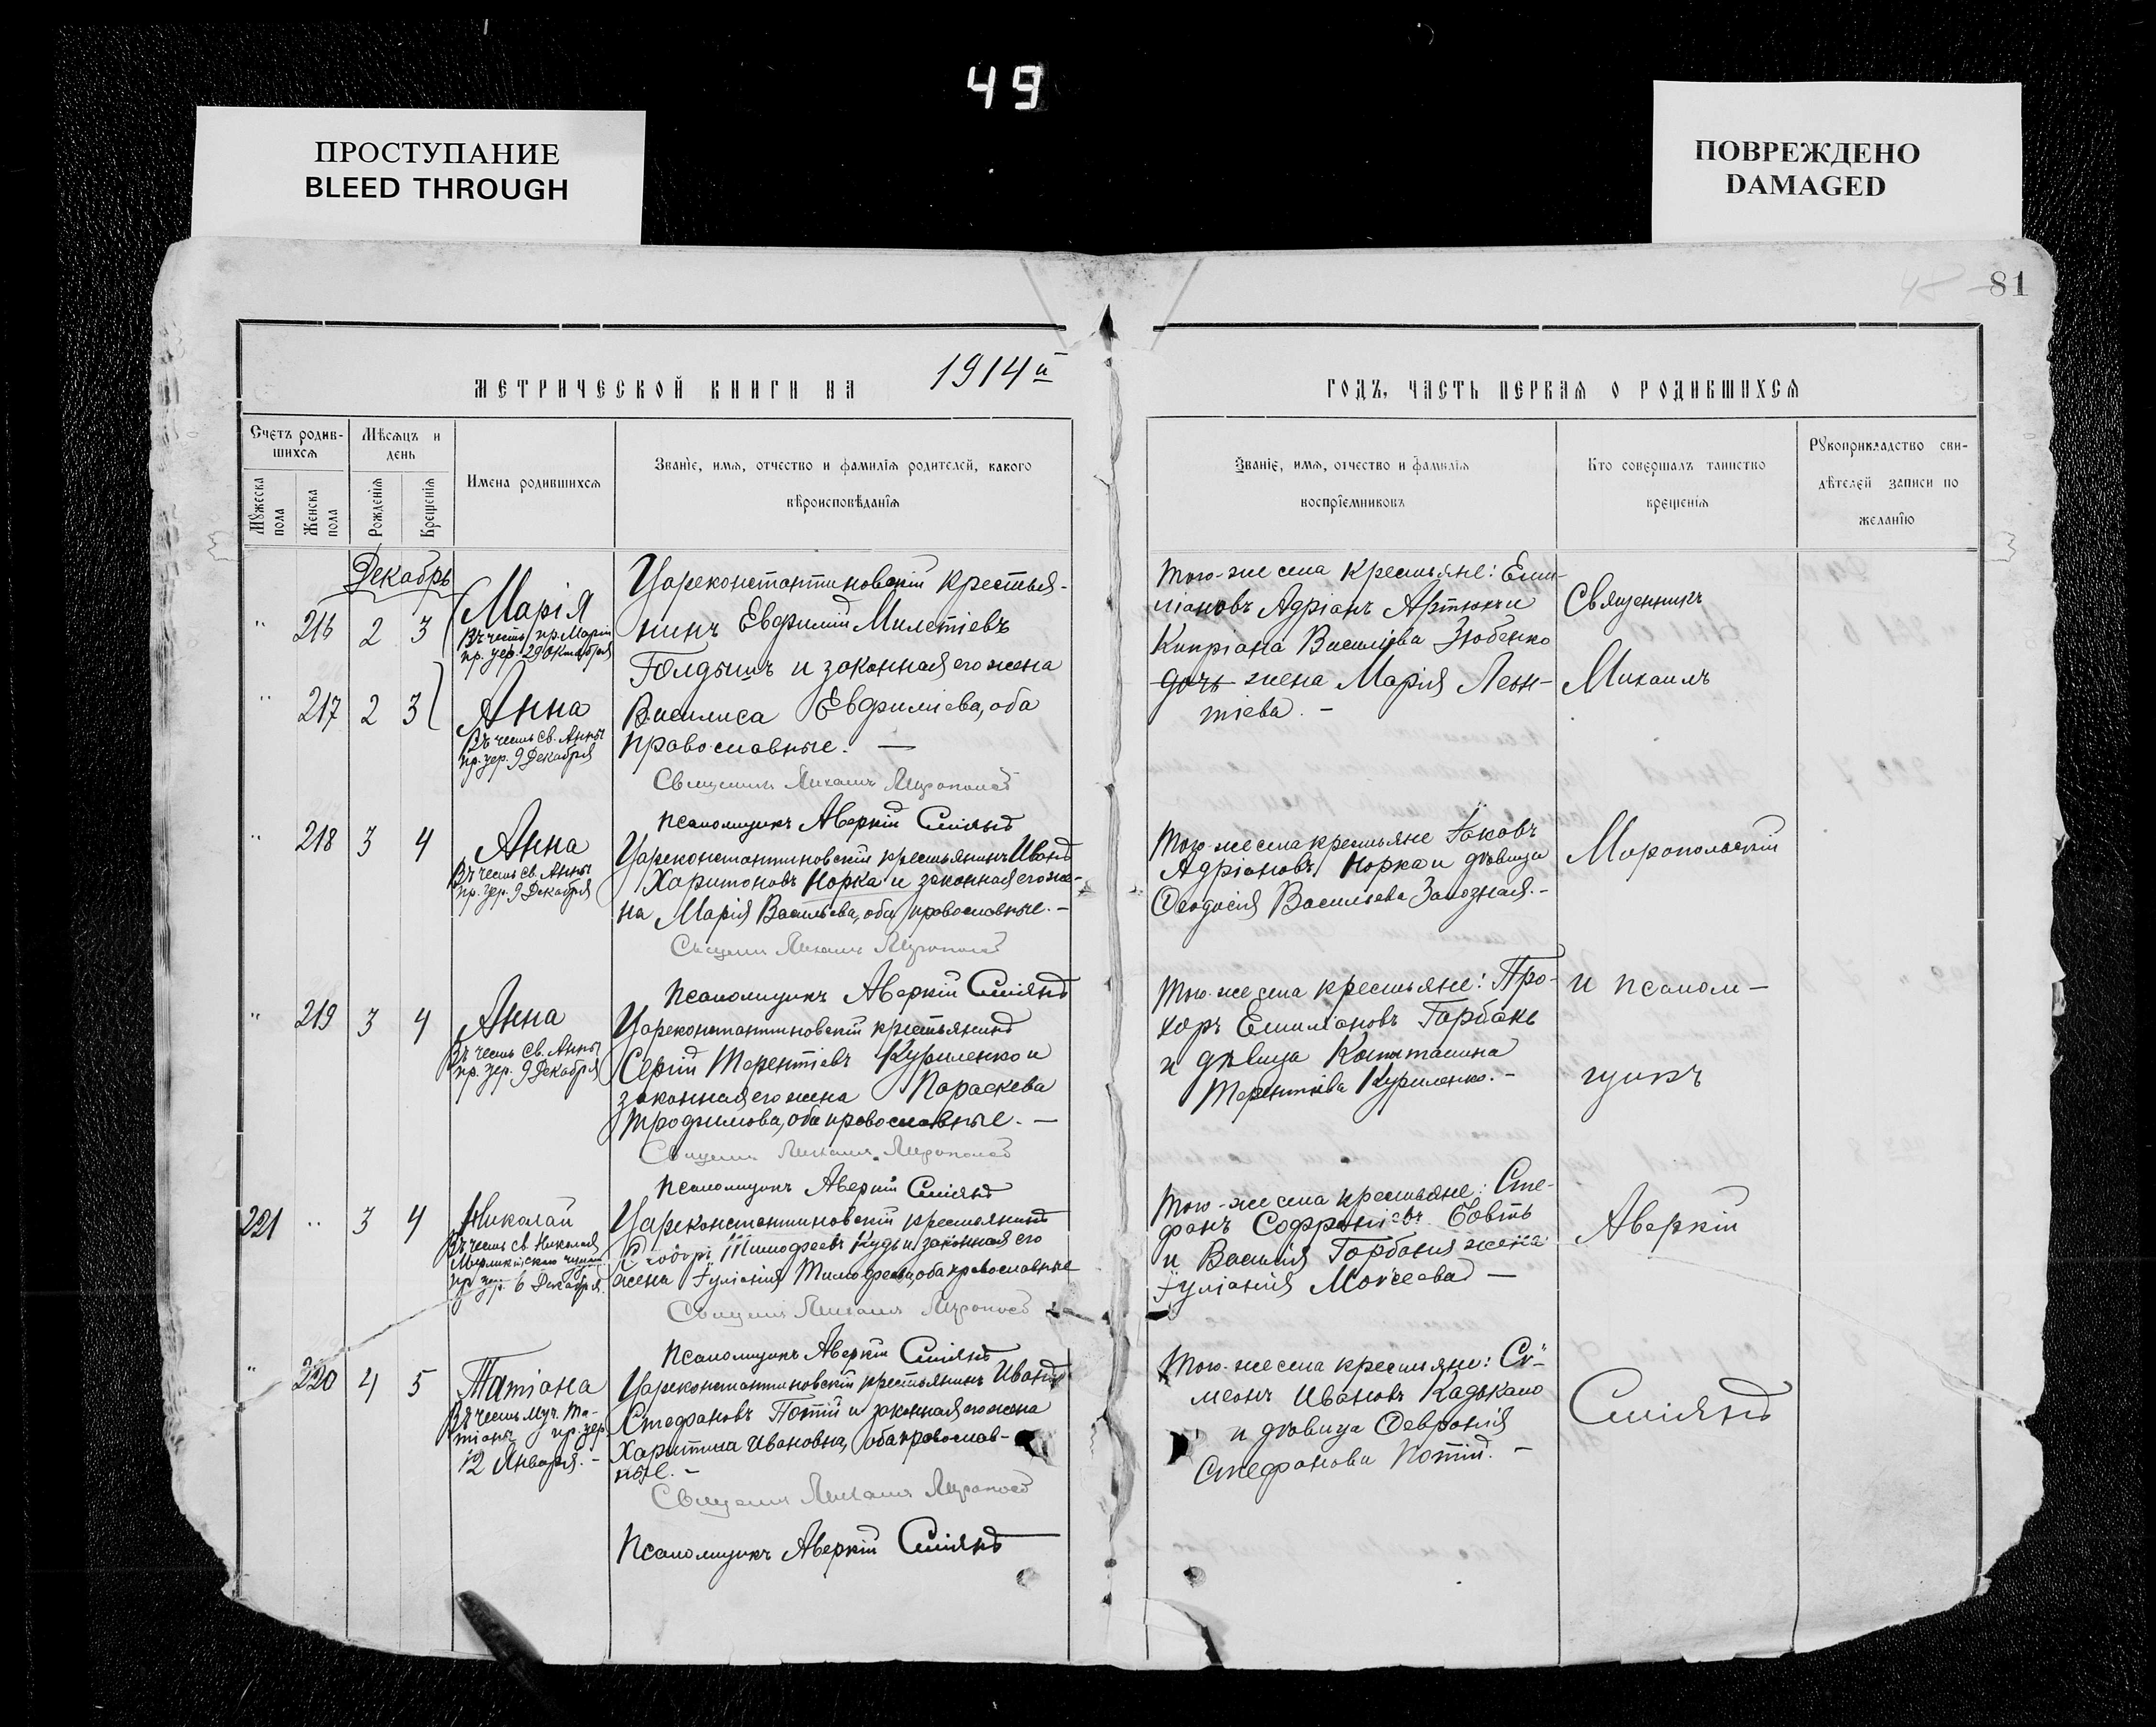 49
ПРОСТУПАНИЕ
BLEED THROUGH
ПОВРЕЖДЕНО
DAMAGED
81
МЕТРИЧЕСКОЙ КНИГИ НА 1914й
ГОДЪ, ЧАСТЬ ПЕРВАЯ О РОДИВШИХСЯ
Счетъ родив-
шихся
Мужеска пола
Женска пола
Мѣсяцъ и
день
Рожденія
Крещенія
Имена родившихся
Званіе, имя, отчество и фамилія родителей, какого
вѣроисповѣданія
Званіе, имя, отчество и фамилія
воспріемниковъ
Кто совершалъ таинство
крещенія
Рукоприкладство сви-
дѣтелей записи по
желанію
Декабрь
" 216 2 3
Марія
Въ честь пр. Маріи
пр. цер. 29 Октября
" 217 2 3
Анна
Въ честь св. Анны
пр. цер. 9 Декабря
Цареконстантиновскій крестья-
нинъ Евфимій Милетіевъ
Голдышъ и законная его жена
Василиса Евфиміева, оба
православные. —
Священникъ Михаилъ
Псаломщикъ Аверкій Сміянъ
Того-же села крестьяне: Еми-
ліановъ Адріанъ и
Кипріана Василіева Зюбенко
дочь жена Марія Леон-
тіева. -
Священникъ
Михаилъ
" 218 3 4
Анна
Въ честь св. Анны
пр. цер. 9 Декабря
Цареконстантиновскій крестьянинъ Иванъ
Харитоновъ Норка и законная его же-
на Марія Васильева, оба православные. -
Михаилъ
Псаломщикъ Аверкій Сміянъ
Того-же села крестьяне Іаковъ
Адріановъ Норка и дѣвица
Ѳеодосія Васильева Залозная. -
" 219 3 4
Анна
Въ честь св. Анны
пр. цер. 9 Декабря
Цареконстантиновскій крестьянинъ
Сергій Терентіевъ Куриленко и
законная его жена Параскева
Трофимова, оба православные. —
Михаилъ
Псаломщикъ Аверкій Сміянъ
Того-же села крестьяне: Про-
хоръ Емиліановъ Горбань
и дѣвица
Терентіева Куриленко. -
и псалом-
щикъ
221 " 3 4
Николай
Въ честь св. Николая
пр. цер. 6 Декабря.
Цареконстантиновскій крестьянинъ
Тимофеевъ и законная его
жена Іуліанія Тимофеева, оба православные
Михаилъ
Псаломщикъ Аверкій Сміянъ
Того-же села крестьяне: Сте-
фанъ Софроніевъ
и Василія Горбаня жена
Іуліанія Моисеева —
Аверкій
" 220 4 5
Татіана
Въ честь муч. Та-
тіаны пр. цер.
12 Января. -
Цареконстантиновскій крестьянинъ Иванъ
Стефановъ Потій и законная его жена
Харитина Ивановна, оба православ-
ные. -
Михаилъ
Псаломщикъ Аверкій Сміянъ
Того-же села крестьяне: Си-
меонъ Ивановъ
и дѣвица Ѳевронія
Стефанова Потій. -
Сміянъ